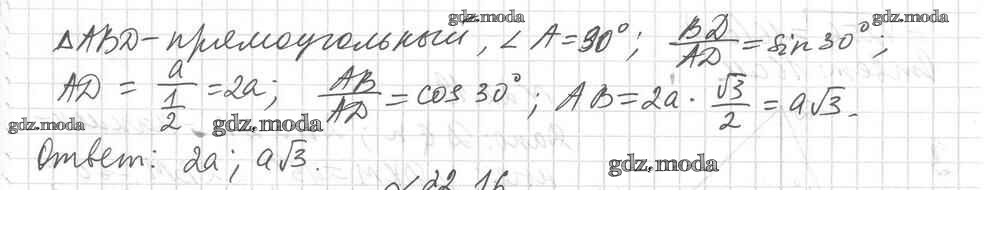 gdz.moda gdz.moda
△ABD - прямоугольный, ∠A = 30°; BD/AD = sin 30°;
AD = a/(1/2) = 2a; AB/AD = cos 30°; AB = 2a · √3/2 = a√3.
gdz.moda gdz.moda
Ответ: 2a; a√3.
gdz.moda
22.16